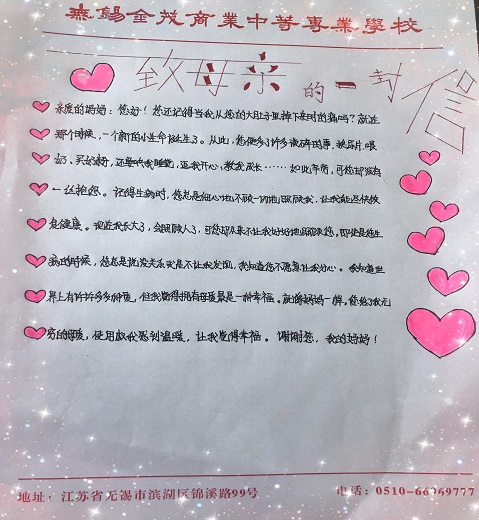 無錫金茂商業中等專業學校
致母亲的一封信
亲爱的妈妈：您好！您还记得当我从您的大肚子里掉下来时的痛吗？就在
那个时候，一个新的小生命诞生了。从此，您便多了许多琐碎的事，换尿片、喂
奶、买奶粉，还要哄我睡觉，逗我开心，教我成长……如此辛苦，可您却没有
一丝抱怨。记得生病时，您总是细心地不顾一切地照顾我，让我能尽快恢
复健康。现在我长大了，会照顾人了，可您却从来不让我好好地照顾您，即使是您生
病的时候，您总是说没关系或是不让我发现，我知道您不愿意让我分心。我知道世
界上有许许多多种爱，但我觉得拥有母爱最是一种幸福。就像妈妈一样，您给了我无
穷的母爱，使用权我感到温暖，让我觉得幸福。谢谢您，我的妈妈！
地址：江苏省无锡市滨湖区锦溪路99号 电话：0510-66369777